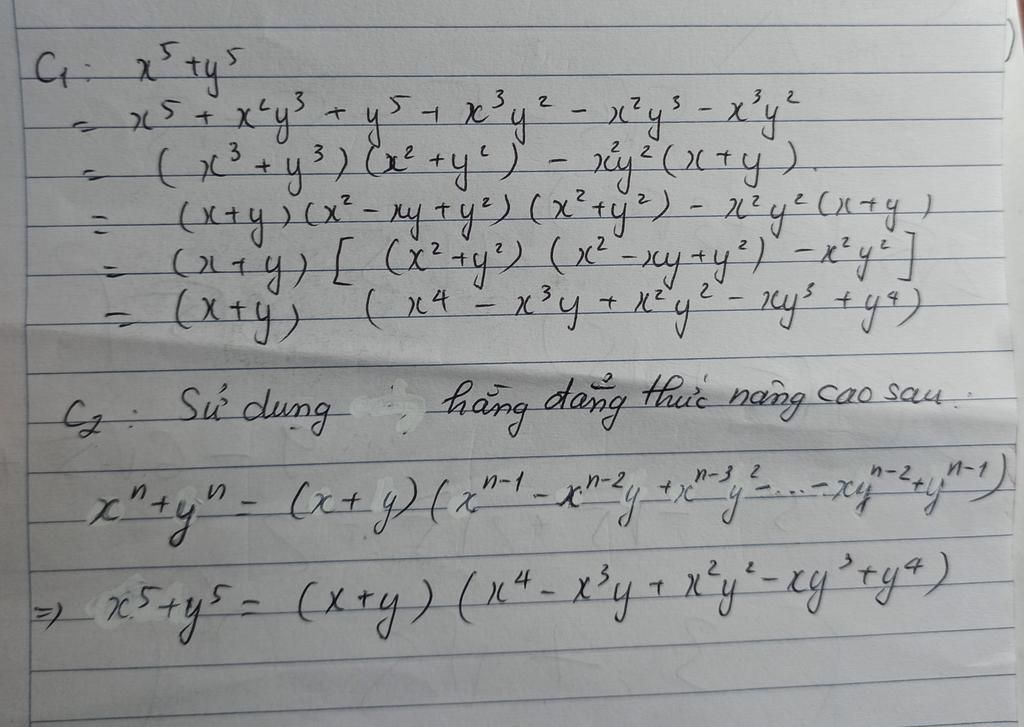 C₁: x⁵ + y⁵
= x⁵ + x²y³ + y⁵ + x³y² - x²y³ - x³y²
= (x³ + y³)(x² + y²) - x²y²(x + y).
= (x+y)(x² - xy + y²)(x² + y²) - x²y²(x+y)
= (x+y)[(x² + y²)(x² - xy + y²) - x²y²]
= (x+y)(x⁴ - x³y + x²y² - xy³ + y⁴)
C₂: Sử dụng hằng đẳng thức nâng cao sau:
xⁿ + yⁿ = (x + y)(xⁿ⁻¹ - xⁿ⁻²y + xⁿ⁻³y² - ... - xyⁿ⁻² + yⁿ⁻¹)
=> x⁵ + y⁵ = (x+y)(x⁴ - x³y + x²y² - xy³ + y⁴)